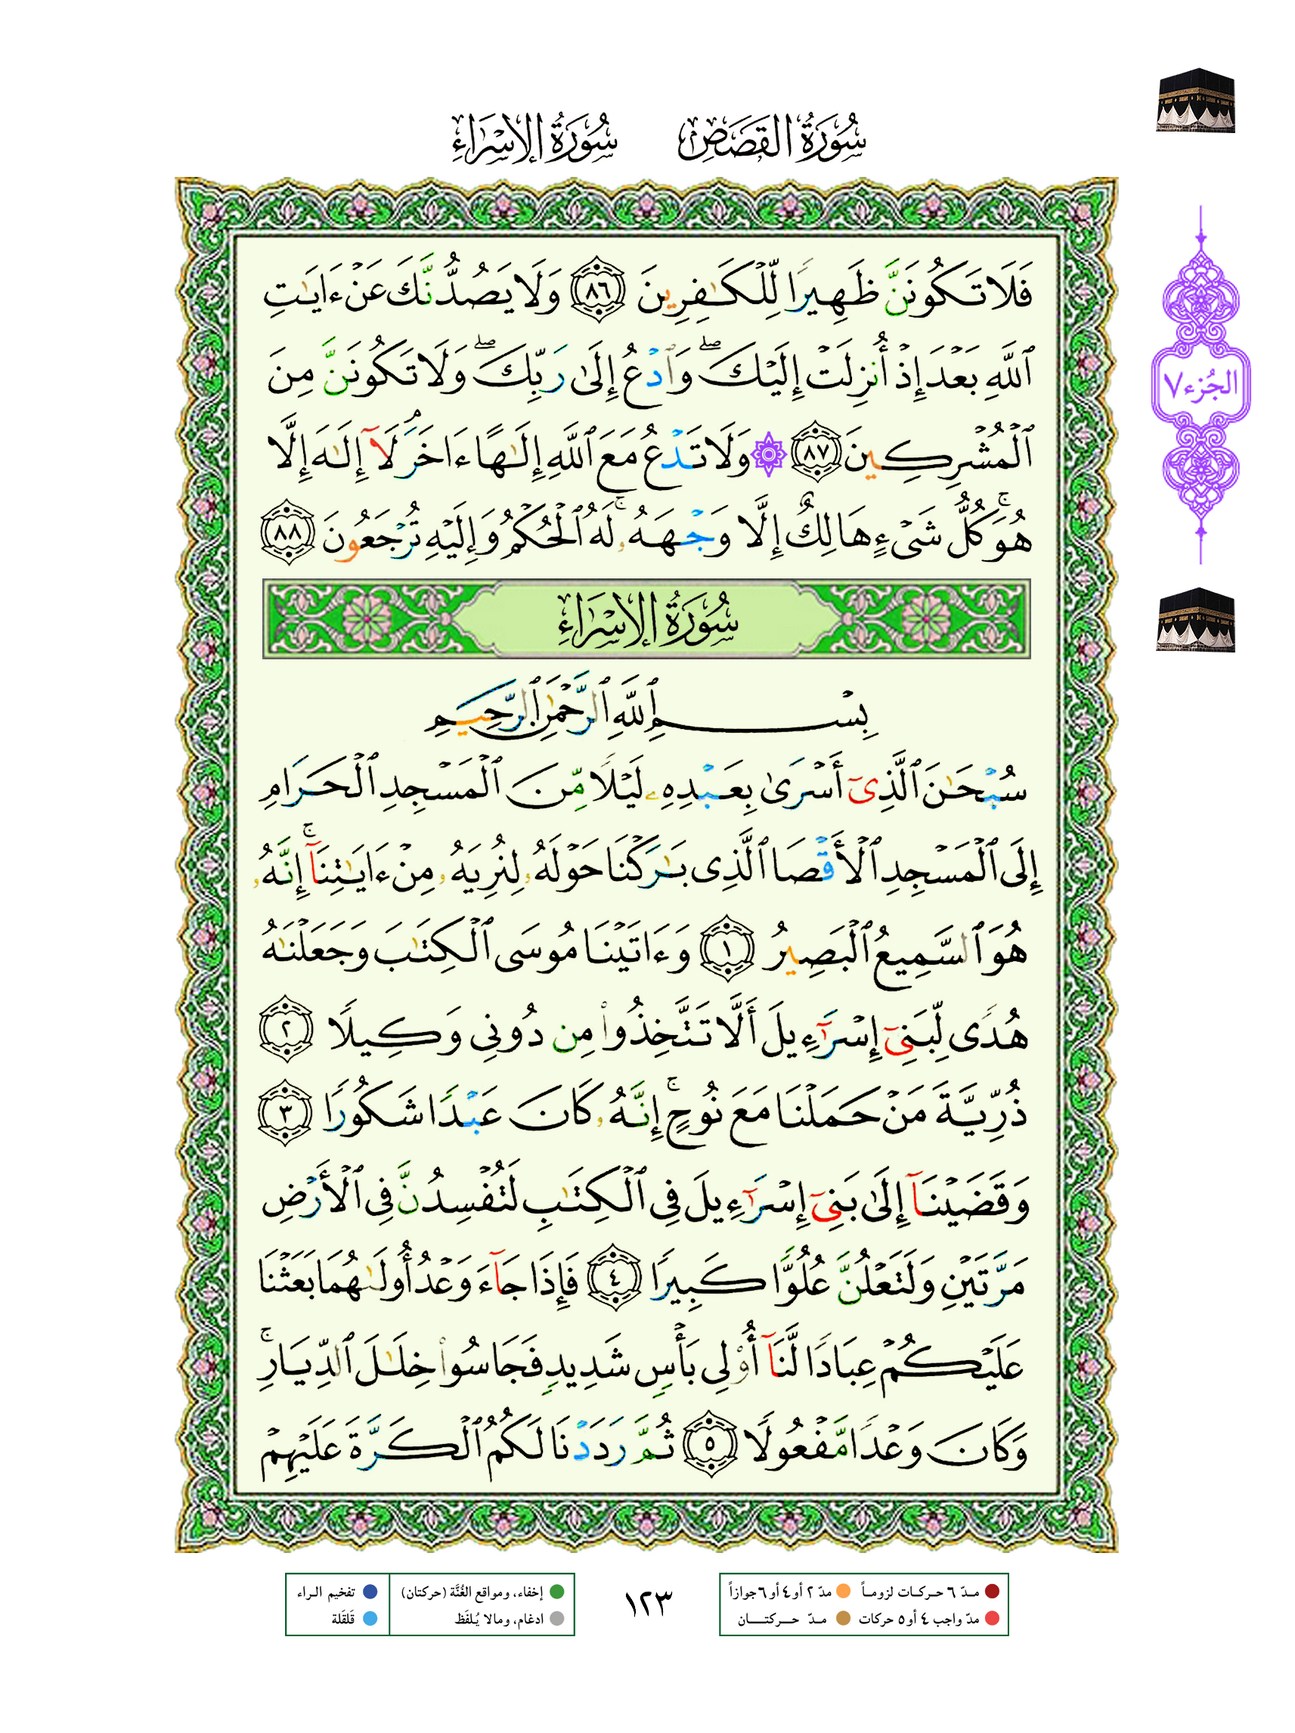 سُورَةُ القَصَصِ سُورَةُ الإِسْرَاءِ
الجُزء ٧
فَلَا تَكُونَنَّ ظَهِيرًا لِّلْكَـٰفِرِينَ ٨٦ وَلَا يَصُدُّنَّكَ عَنْ ءَايَـٰتِ
ٱللَّهِ بَعْدَ إِذْ أُنزِلَتْ إِلَيْكَ ۖ وَٱدْعُ إِلَىٰ رَبِّكَ ۖ وَلَا تَكُونَنَّ مِنَ
ٱلْمُشْرِكِينَ ٨٧ ۞ وَلَا تَدْعُ مَعَ ٱللَّهِ إِلَـٰهًا ءَاخَرَ لَآ إِلَـٰهَ إِلَّا
هُوَ ۚ كُلُّ شَىْءٍ هَالِكٌ إِلَّا وَجْهَهُۥ ۚ لَهُ ٱلْحُكْمُ وَإِلَيْهِ تُرْجَعُونَ ٨٨
سُورَةُ الإِسْرَاءِ
بِسْمِ ٱللَّهِ ٱلرَّحْمَـٰنِ ٱلرَّحِيمِ
سُبْحَـٰنَ ٱلَّذِىٓ أَسْرَىٰ بِعَبْدِهِۦ لَيْلًا مِّنَ ٱلْمَسْجِدِ ٱلْحَرَامِ
إِلَى ٱلْمَسْجِدِ ٱلْأَقْصَا ٱلَّذِى بَـٰرَكْنَا حَوْلَهُۥ لِنُرِيَهُۥ مِنْ ءَايَـٰتِنَآ ۚ إِنَّهُۥ
هُوَ ٱلسَّمِيعُ ٱلْبَصِيرُ ١ وَءَاتَيْنَا مُوسَى ٱلْكِتَـٰبَ وَجَعَلْنَـٰهُ
هُدًى لِّبَنِىٓ إِسْرَٰٓءِيلَ أَلَّا تَتَّخِذُوا۟ مِن دُونِى وَكِيلًا ٢
ذُرِّيَّةَ مَنْ حَمَلْنَا مَعَ نُوحٍ ۚ إِنَّهُۥ كَانَ عَبْدًا شَكُورًا ٣
وَقَضَيْنَآ إِلَىٰ بَنِىٓ إِسْرَٰٓءِيلَ فِى ٱلْكِتَـٰبِ لَتُفْسِدُنَّ فِى ٱلْأَرْضِ
مَرَّتَيْنِ وَلَتَعْلُنَّ عُلُوًّا كَبِيرًا ٤ فَإِذَا جَآءَ وَعْدُ أُولَىٰهُمَا بَعَثْنَا
عَلَيْكُمْ عِبَادًا لَّنَآ أُو۟لِى بَأْسٍ شَدِيدٍ فَجَاسُوا۟ خِلَـٰلَ ٱلدِّيَارِ ۚ
وَكَانَ وَعْدًا مَّفْعُولًا ٥ ثُمَّ رَدَدْنَا لَكُمُ ٱلْكَرَّةَ عَلَيْهِمْ
مدّ ٦ حركات لزوماً مدّ ٢ أو ٤ أو ٦ جوازاً
مدّ واجب ٤ أو ٥ حركات مدّ حركتان
١٢٣
إخفاء، ومواقع الغُنَّة (حركتان) تفخيم الراء
ادغام، ومالا يُلفَظ قَلقَلة